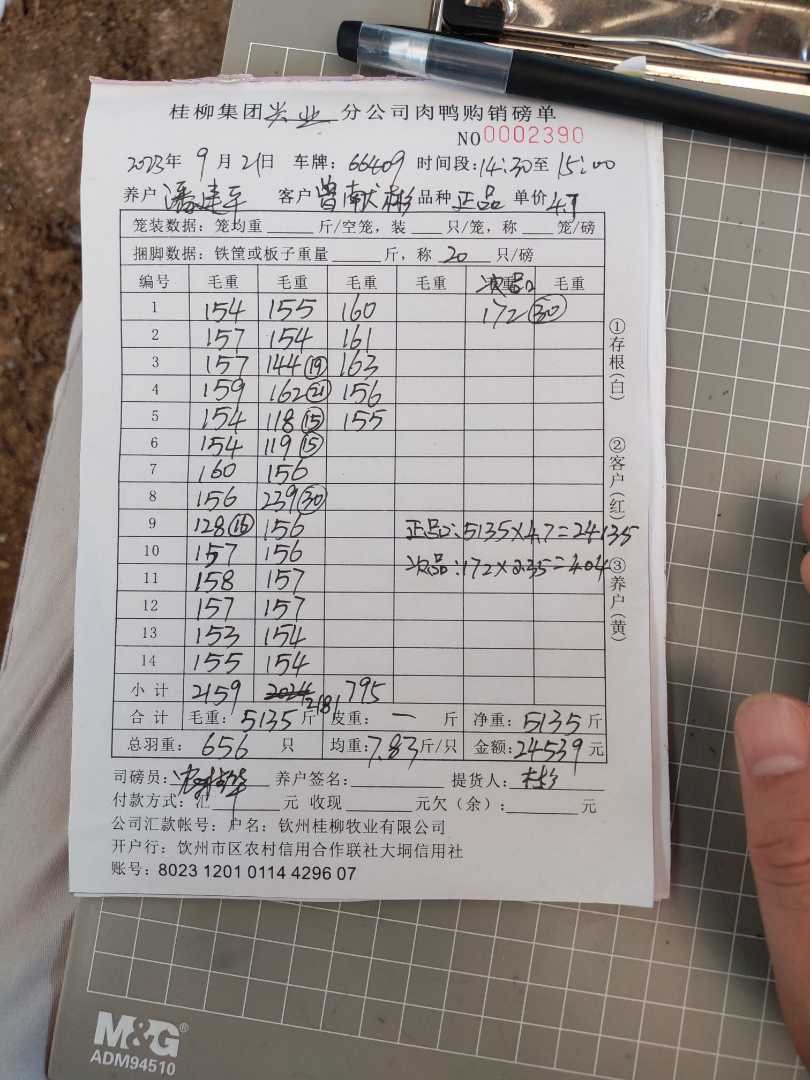 桂柳集团兴业分公司肉鸭购销磅单
NO 0002390
2023年 9月21日 车牌：66409 时间段：14:30至 15:00
养户 潘建平 客户 曾献彬 品种 正品 单价 4.7
笼装数据：笼均重 斤/空笼，装 只/笼，称 笼/磅
捆脚数据：铁筐或板子重量 斤，称 20 只/磅
编号 毛重 毛重 毛重 毛重 次品 毛重
1 154 155 160 172 ㉚
2 157 154 161
3 157 144 ⑲ 163
4 159 162 ㉑ 156
5 154 118 ⑮ 155
6 154 119 ⑮
7 160 156
8 156 239 ㉚
9 128 ⑯ 156 正品：5135×4.7=24135
10 157 156 次品：172×2.35=404
11 158 157
12 157 157
13 153 154
14 155 154
小计 2159 2024 2181 795
合计 毛重：5135斤 皮重：一 斤 净重：5135斤
总羽重：656 只 均重：7.83斤/只 金额：24539元
司磅员： 养户签名： 提货人：
付款方式：汇 元 收现 元欠（余）： 元
公司汇款帐号：户名：钦州桂柳牧业有限公司
开户行：饮州市区农村信用合作联社大垌信用社
账号：8023 1201 0114 4296 07
①存根（白）
②客户（红）
③养户（黄）
M&G
ADM94510